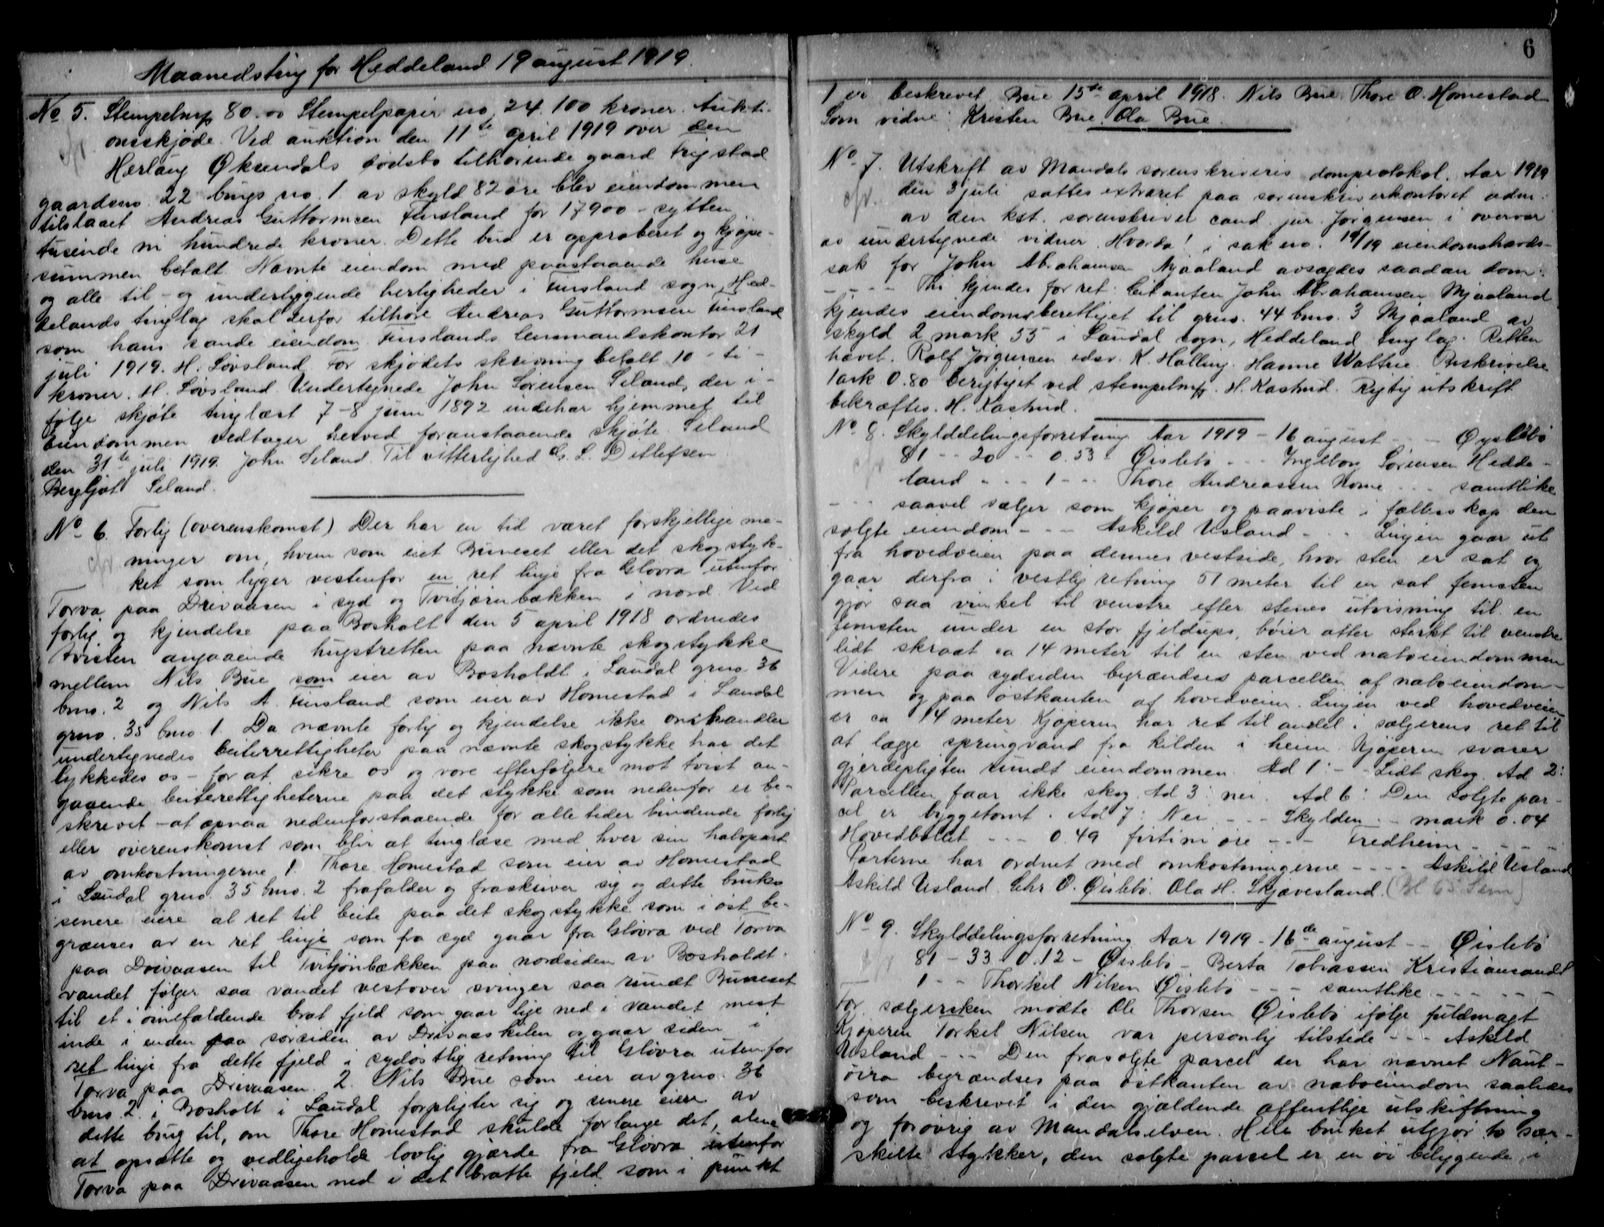 Maanedsting for Heddeland 19 august 1919.
No 5. Stempelmrk 80.00 Stempelpapir no 24. 100 kroner. Aukti-
onsskjøde. Ved auktion den 11te april 1919 over den
Herlaug Øksendals dødsbo tilhørende gaard Trygstad
gaardsno. 22 brugs no. 1 av skyld 82 øre blev eiendommen
tilslaaet Andreas Guttormsen Finsland for 17900 - sytten
tusinde ni hundrede kroner. Dette bud er approberet og kjøpe-
summen betalt. Nævnte eiendom med paastaaende huse
og alle til- og underliggende herligheder i Finsland sogn, Hed-
delands tinglag skal derfor tilhøre Andreas Guttormsen Finsland
som hans sande eiendom. Finslands lensmandskontor 21
juli 1919. H. Løvsland. For skjødets skrivning betalt 10 - ti -
kroner. H. Løvsland. Undertegnede John Sørensen Seland, der i-
følge skjøte tinglæst 7-8 juni 1892 indehar hjemmel til
eiendommen vedtager herved foranstaaende skjøte. Seland
den 31te juli 1919. John Seland. Til vitterlighed G. S. Ditlefsen
Bergljot Seland.
No 6. Forlig (overenskomst) Der har en tid været forskjellige me-
ninger om, hvem som eiet Buneset eller det skogstyk-
ket som ligger vestenfor en ret linje fra Gløvra utenfor
Torva paa Drivaasen i syd og Tvitjernbækken i nord. Ved
forlig og kjendelse paa Bosholt den 5 april 1918 ordnedes
tvisten angaaende hugstretten paa nævnte skogstykke
mellem Nils Bue som eier av Bosholdt i Laudal grno. 36
brno. 2 og Nils A. Finsland som eier av Homestad i Laudal
grno. 35 brno 1. Da nævnte forlig og kjendelse ikke omhandler
undertegnedes beiterrettigheter paa nævnte skogstykke har det
lykkedes os - for at sikre os og vore efterfølgere mot tvist an-
gaaende beiterettigheterne paa det stykke som nedenfor er be-
skrevet - at opnaa nedenforstaaende for alle tider bindende forlig
eller overenskomst som blir at tinglæse med hver sin halvpart
av omkostningerne 1. Thore Homestad som eier av Homestad
i Laudal grno. 35 brno. 2 frafalder og fraskriver sig og dette bruks
senere eiere al ret til beite paa det skogstykke som i øst be-
grænses av en ret linje som fra syd gaar fra Gløvra ved Torva
paa Drivaasen til Tvitjønbækken paa nordsiden av Bosholdt.
vandet følger saa vandet vestover svinger saa rundt Buneset
til et i øinefaldende brat fjeld som gaar like ned i vandet mest
inde i enden paa sørsiden av Drivaaskilen og gaar siden i
ret linje fra dette fjeld i sydostlig retning til Gløvra utenfor
Torva paa Drivaasen. 2. Nils Bue som eier av grno. 36
brno. 2 i Bosholt i Laudal forpligter sig og senere eiere av
dette brug til, om Thore Homestad skulde forlange det, alene
at opsætte og vedligeholde lovlig gjærde fra Gløvra utenfor
Torva paa Drivaasen ned i det bratte fjeld som i punkt
6
1 er beskrevet. Bue 15de april 1918. Nils Bue. Thore O. Homestad
Som vidne: Kristen Bue. Ola Bue.
No 7. Utskrift av Mandals sorenskriveris domprotokol. Aar 1919
den 3 juli sattes extraret paa sorenskriverkontoret adm.
av den kst. sorenskriver cand. jur. Jørgensen i overvær
av undertegnede vidner. Hvorda! i sak no. 19/19 eiendomshævds-
sak for John Abrahamsen Mjaaland avsagdes saadan dom:
- - - - Thi kjendes for ret: Citanten John Abrahamsen Mjaaland
kjendes eiendomsberettiget til grno. 44 brno. 3 Mjaaland av
skyld 2 mark 55 i Laudal sogn, Heddeland tinglag. Retten
hævet. Rolf Jørgensen edsv. K. Halling. Hanne Wattne. Beskrivelse
1 ark 0.80 berigtiget ved stempelmrk. H. Kastrud. Rigtig utskrift
bekræftes. H. Kastrud.
No 8. Skylddelingsforretning Aar 1919 - 16 august - - Øyslebø
81 - 20 - 0.53 Øislebø - - - Ingeborg Sørensen Hedde-
land - - - 1 - - Thore Andreassen Home - - - samtlike
- - - saavel sælger som kjøper og paaviste i fællesskap den
solgte eiendom - - - Askild Usland - - Linjen gaar ut
fra hovedveien paa dennes vestside, hvor sten er sat og
gaar derfra i vestlig retning 51 meter til en sat femsten
gjør saa vinkel til venstre efter stenes utvisning til en
femsten under en stor fjeldups, bøier atter sterkt til venstre
lidt skraat ca 14 meter til en sten ved naboeiendommen
Videre paa sydsiden begrændses parcellen af naboeiendom-
men og paa østkanten af hovedveien. Linjen ved hovedveien
er ca 14 meter. Kjøperen har ret til andel i sælgerens ret til
at lægge springvand fra kilden i heien. Kjøperen svarer
gjerdepligten rundt eiendommen. Ad 1: - Lidt skog. Ad 2:
Parcellen faar ikke skog. Ad 3: nei. Ad 6: Den solgte par-
cel er byggetomt. Ad 7: Nei - - - Skylden - - mark 0.04
Hovedbøllet - - - 0.49 firtini øre - - - Fredheim - - - -
Parterne har ordnet med omkostningerne - - - Askild Usland
Askild Usland. Chr O. Øislebø. Ola H. Skjæveland. (Bl 65. Sem)
No 9. Skylddelingsforretning Aar 1919 - 16de august - - Øislebø
81 - 33 0.12 - Øislebø - Berta Tobiassen Kristiansand
1 - - Thorkel Nilsen Øislebø - - - samtlike - - - -
For sælgersken mødte Ole Thorsen Øislebø ifølge fuldmagt
Kjøperen Torkel Nilsen var personlig tilstede - - - Askild
Usland - - - Den frasolgte parcel der har navnet Naut-
øira begrændses paa østkanten av naboeiendom saaledes
som beskrevet i den gjældende offentlige utskiftning
og forøvrig av Mandalselven. Hele bruket utgjør to sær-
skilte stykker, den solgte parcel er en øi beliggende i